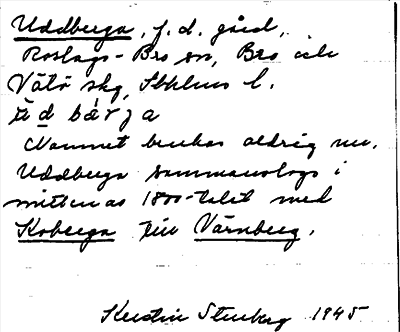 Uddberga, f.d. gård,
Roslags-Bro sn, Bro och
Vätö skg, Sthlms l.
ùd bärja
Namnet brukas aldrig nu.
Uddberga sammanslogs i
mitten av 1800-talet med
Koberga till Värnberg.
Kerstin Stenberg 1945